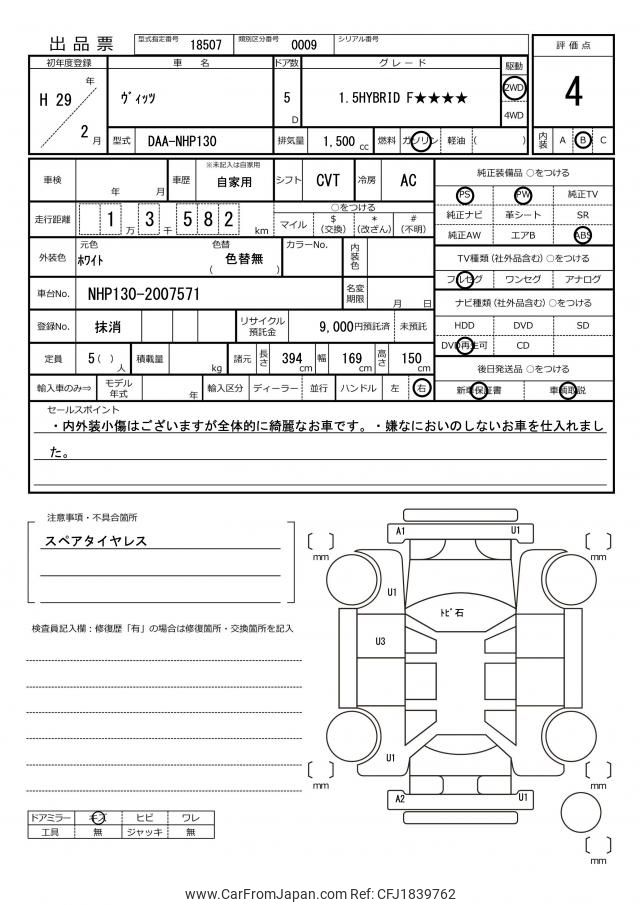 出品票
型式指定番号 18507 類別区分番号 0009 シリアル番号
評価点
4
内装 A B C
初年度登録 車名 ドア数 グレード 駆動
H 29 年 2 月
ヴィッツ
5 D
1.5HYBRID F★★★★
2WD
4WD
型式 DAA-NHP130 排気量 1,500 cc 燃料 ガソリン 軽油 ( )
車検 年 月 車歴 ※未記入は自家用 自家用 シフト CVT 冷房 AC
走行距離 1 万 3 千 5 8 2 km
○をつける
マイル $(交換) *(改ざん) #(不明)
外装色 元色 ホワイト 色替 ( 色替無 ) カラーNo. 内装色
車台No. NHP130-2007571 名変期限 月 日
登録No. 抹消 リサイクル預託金 9,000円預託済 未預託
定員 5 ( ) 人 積載量 kg 諸元 長さ 394 cm 幅 169 cm 高さ 150 cm
輸入車のみ⇒ モデル年式 年 輸入区分 ディーラー 並行 ハンドル 左 右
純正装備品 ○をつける
PS PW 純正TV
純正ナビ 革シート SR
純正AW エアB ABS
TV種類 (社外品含む) ○をつける
フルセグ ワンセグ アナログ
ナビ種類 (社外品含む) ○をつける
HDD DVD SD
DVD再生可 CD
後日発送品 ○をつける
新車保証書 車輌取説
セールスポイント
・内外装小傷はございますが全体的に綺麗なお車です。・嫌なにおいのしないお車を仕入れまし
た。
注意事項・不具合箇所
スペアタイヤレス
検査員記入欄：修復歴「有」の場合は修復箇所・交換箇所を記入
ドアミラー キズ ヒビ ワレ
工具 無 ジャッキ 無
A1 U1
mm mm
U1
トビ石
U3
U1
mm mm
A2 U1
mm
www.CarFromJapan.com Ref: CFJ1839762